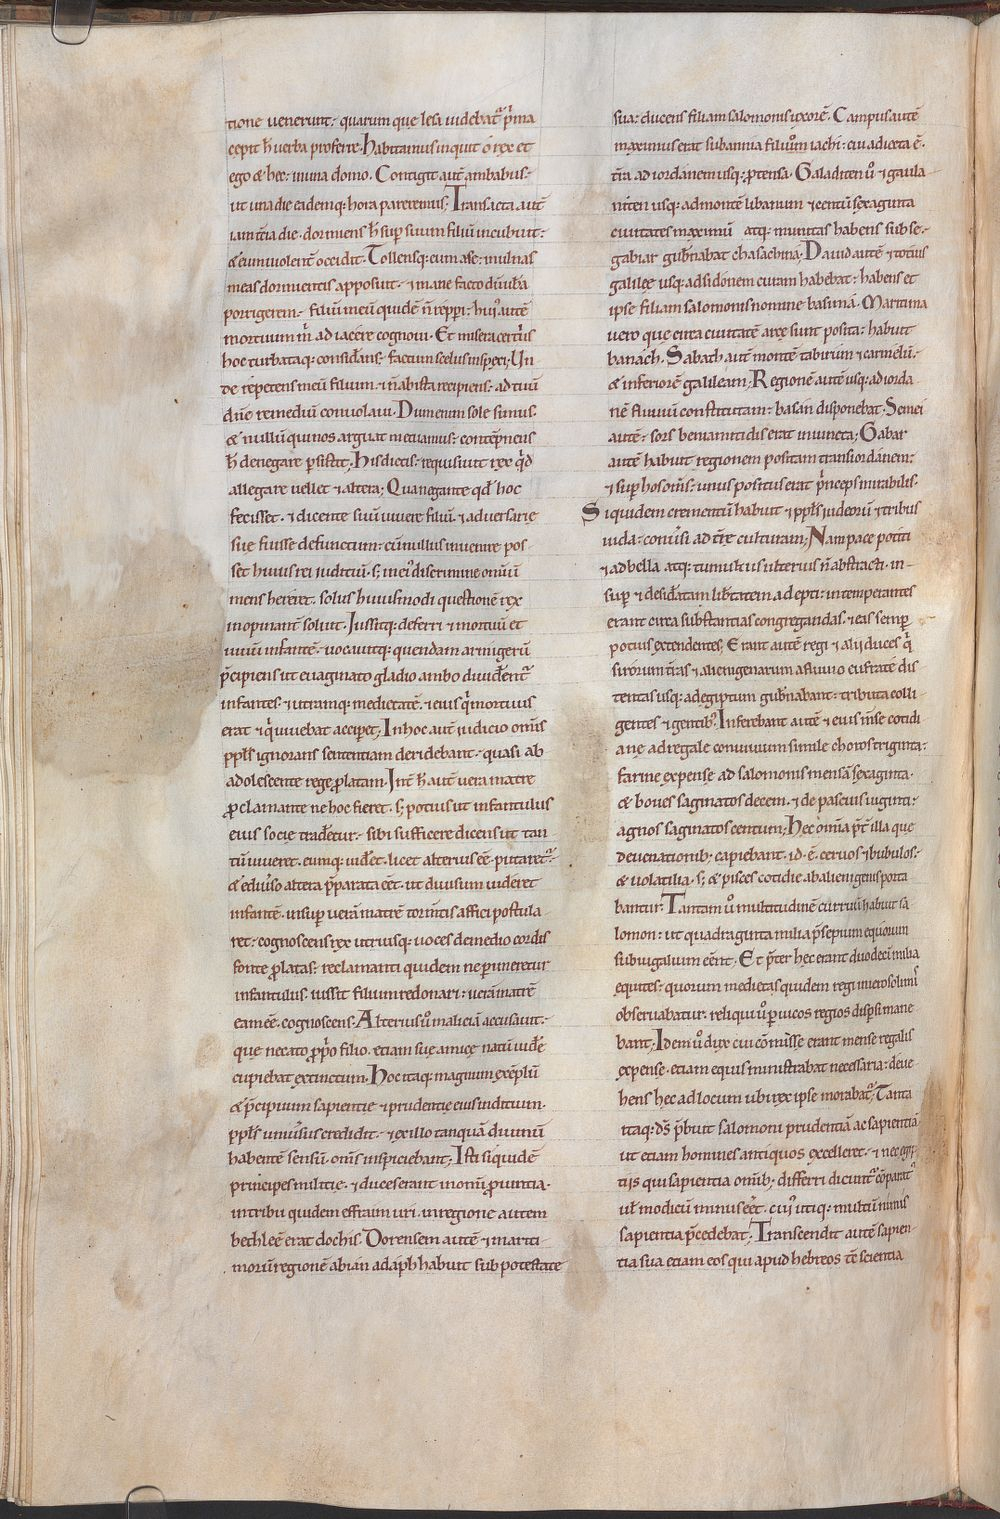 tione uenerunt: quarum que lesa uidebat᷑ p̉ma
cępit h̄ uerba proferre. Habitamus inquit o rex et
ego & hec: in una domo. Contigit aut̄ ambabus:
ut una die eademq; hora pareremus; Transacta aut̄
iam t̄cia die. dormiens h̄ sup̱ suum filiū incubuit:
& eum uolent̄ occidit. Tollensq; eum a se: in ulnas
meas dormientis apposuit. & mane facto dū ubera
porrigerem. filiū meū quidē n̄ rep̱peri: hui᷒ autē
mortuum m̉ adiacere cognoui. Et misera certi᷒
hoc turbataq; consid̄ans. factum scelus inspexi; Un
de repetens meū filium. & n̄ ab ista recipiens: ad tuū
dn̄e remediū conuolaui. Dum enim sole sumus.
& nullū qui nos arguat metuamus: contep̄nens
h̄ denegare p̱sistit. His dictis: requisiuit rex q̉d
allegare uellet & altera; Qua negante qd̄ hoc
fecisset. & dicente suū uiuere filiū & aduersarię
sue fuisse defunctum: cū nullus inuenire pos-
set huius rei iuditiū. s; in ei᷒ discrimine omniū
mens hereret. solus huiusmodi questionē rex
inopinant̄ soluit. Iussitq; deferri & mortuū et
uiuū infantē. uocauitq; quendam armigerū
p̄cipiens ut euaginato gladio ambo diuid̄ent᷑
infantes. & utramq; medietatē. & eius q̉ mortuus
erat & q̉ uiuebat accip̱et; In hoc aut̄ iudicio om̄s
ppl̄s ignorans sententiam deridebant. quasi ab
adolescente rege ꝓlatam. Int̄ h̄ aut̄ uera matre
ꝓclamante ne hoc fieret. s; potius ut infantulus
eius socie trad̄etur. sibi sufficere dicens ut tan
tū uiueret. eumq; uid̄et. licet alterius eē putaret᷑:
& ediu̓so altera p̄parata eēt. ut diuisum uideret
infantē. insup̱ uerā matrē torm̄tis affici postula
ret: cognoscens rex utriusq; uoces de medio cordis
fonte ꝓlatas: reclamanti quidem ne p̱imeretur
infantulus. iussit filium redonari: uerā matrē
eam eē. cognoscens. Alterius u̓ maliciā accusauit.
que necato ꝓp̉o filio. etiam sue amice natū uid̄e
cupiebat extinctum. Hoc itaq; magnum exēplū
& p̄cipium sapientie & prudentie eius inditium.
ppl̄s uniu̓sus credidit. & ex illo tanquā diuinū
habentē sensū. om̄s inspiciebant; Isti siquidē
principes militie. & duces erant in omi ꝓuintia.
in tribu quidem effraim uri. in regione autem
bethleē erat dochis. Dorensem autē & marti-
morū regionē abian adap̱b habuit sub potestate
sua: ducens filiam salomonis uxorē. Campus autē
maximus erat sub annia filiū iachi: cui adiecta ē.
t̄ra ad iordanem usq; ꝓtensa. Galaditen u̓ & gaula
niten usq; ad montē libanum & centū sexaginta
ciuitates maximū atq; munitas habens sub se.
gabiar gub̄nabat chasachina. Dauid autē & totius
galilee usq; ad sidonem curam habebat: habens et
ipse filiam salomonis nomine basimā. Maritima
uero que circa ciuitatē arce sunt posita: habuit
banach. Sabach aut̄ montē tabirum & carmelū:
& inferiorē galileam; Regionē autē usq; ad iorda
nē fluuiū constitutam: basan disponebat. Semei
autē. sors beniamitidis erat iniuncta; Gabar
autē habuit regionem positam trans iordanem:
& sup̱ hos om̄s: unus positus erat p̉nceps mirabilis.
Siquidem crementū habuit & ppl̄s iudeorū & tribus
iuda: conu̓si ad t̄re culturam; Nam pace potiti
& ad bella atq; tumultus ulterius n̄ abstracti. in-
sup̱ & desid̄atam lib̄tatem adepti: intemperantes
erant circa substantias congregandas. & eas semp̱
potius extendentes; Erant autē regi & alij duces q̉
sirorum t̄ras & alienigenarum a fluuio eufratē dis
tentas usq; ad egiptum gub̄nabant: tributa colli
gentes & gentib᷒. Inferebant autē & eius m̄se cotidi
ane ad regale conuiuium simile choros triginta:
farine expense ad salomonis mensā sexaginta.
& boues saginatos decem. & de pascuis uiginti:
agnos saginatos centum; Hec om̄ia p̄t̄ illa que
de uenationib; capiebant. id. ē. ceruos & bubulos:
& uolatilia. s; & pisces cotidie ab alienigenis porta
bantur. Tantam u̓ multitudinē curruū habuit sa
lomon: ut quadraginta milia p̄sepium equorum
subiugalium eēnt. Et p̄ter hec erant duodeci milia
equites: quorum medietas quidem regi in ierosolimis
obseruabatur. reliqui u̓ p̱ uicos regios disp̱si mane
bant; Idem u̓ dux cui cōmisse erant mense regalis
expense. etiam equis ministrabat necessaria: deue
hens hec ad locum ubi rex ipse morabat᷑; Tanta
itaq; ds̄ p̄buit salomoni prudentiā ac sapientiā
ut etiam homines antiquos excelleret. & nec egip
tiis qui sapientia omib; differri dicunt᷑ cōparat᷑
ul̄ modicū minus eēt. cui᷒ utiq; multū nimis
sapientia p̄cedebat; Transcendit autē sapien-
tia sua etiam eos qui apud hebreos t̄e scientia